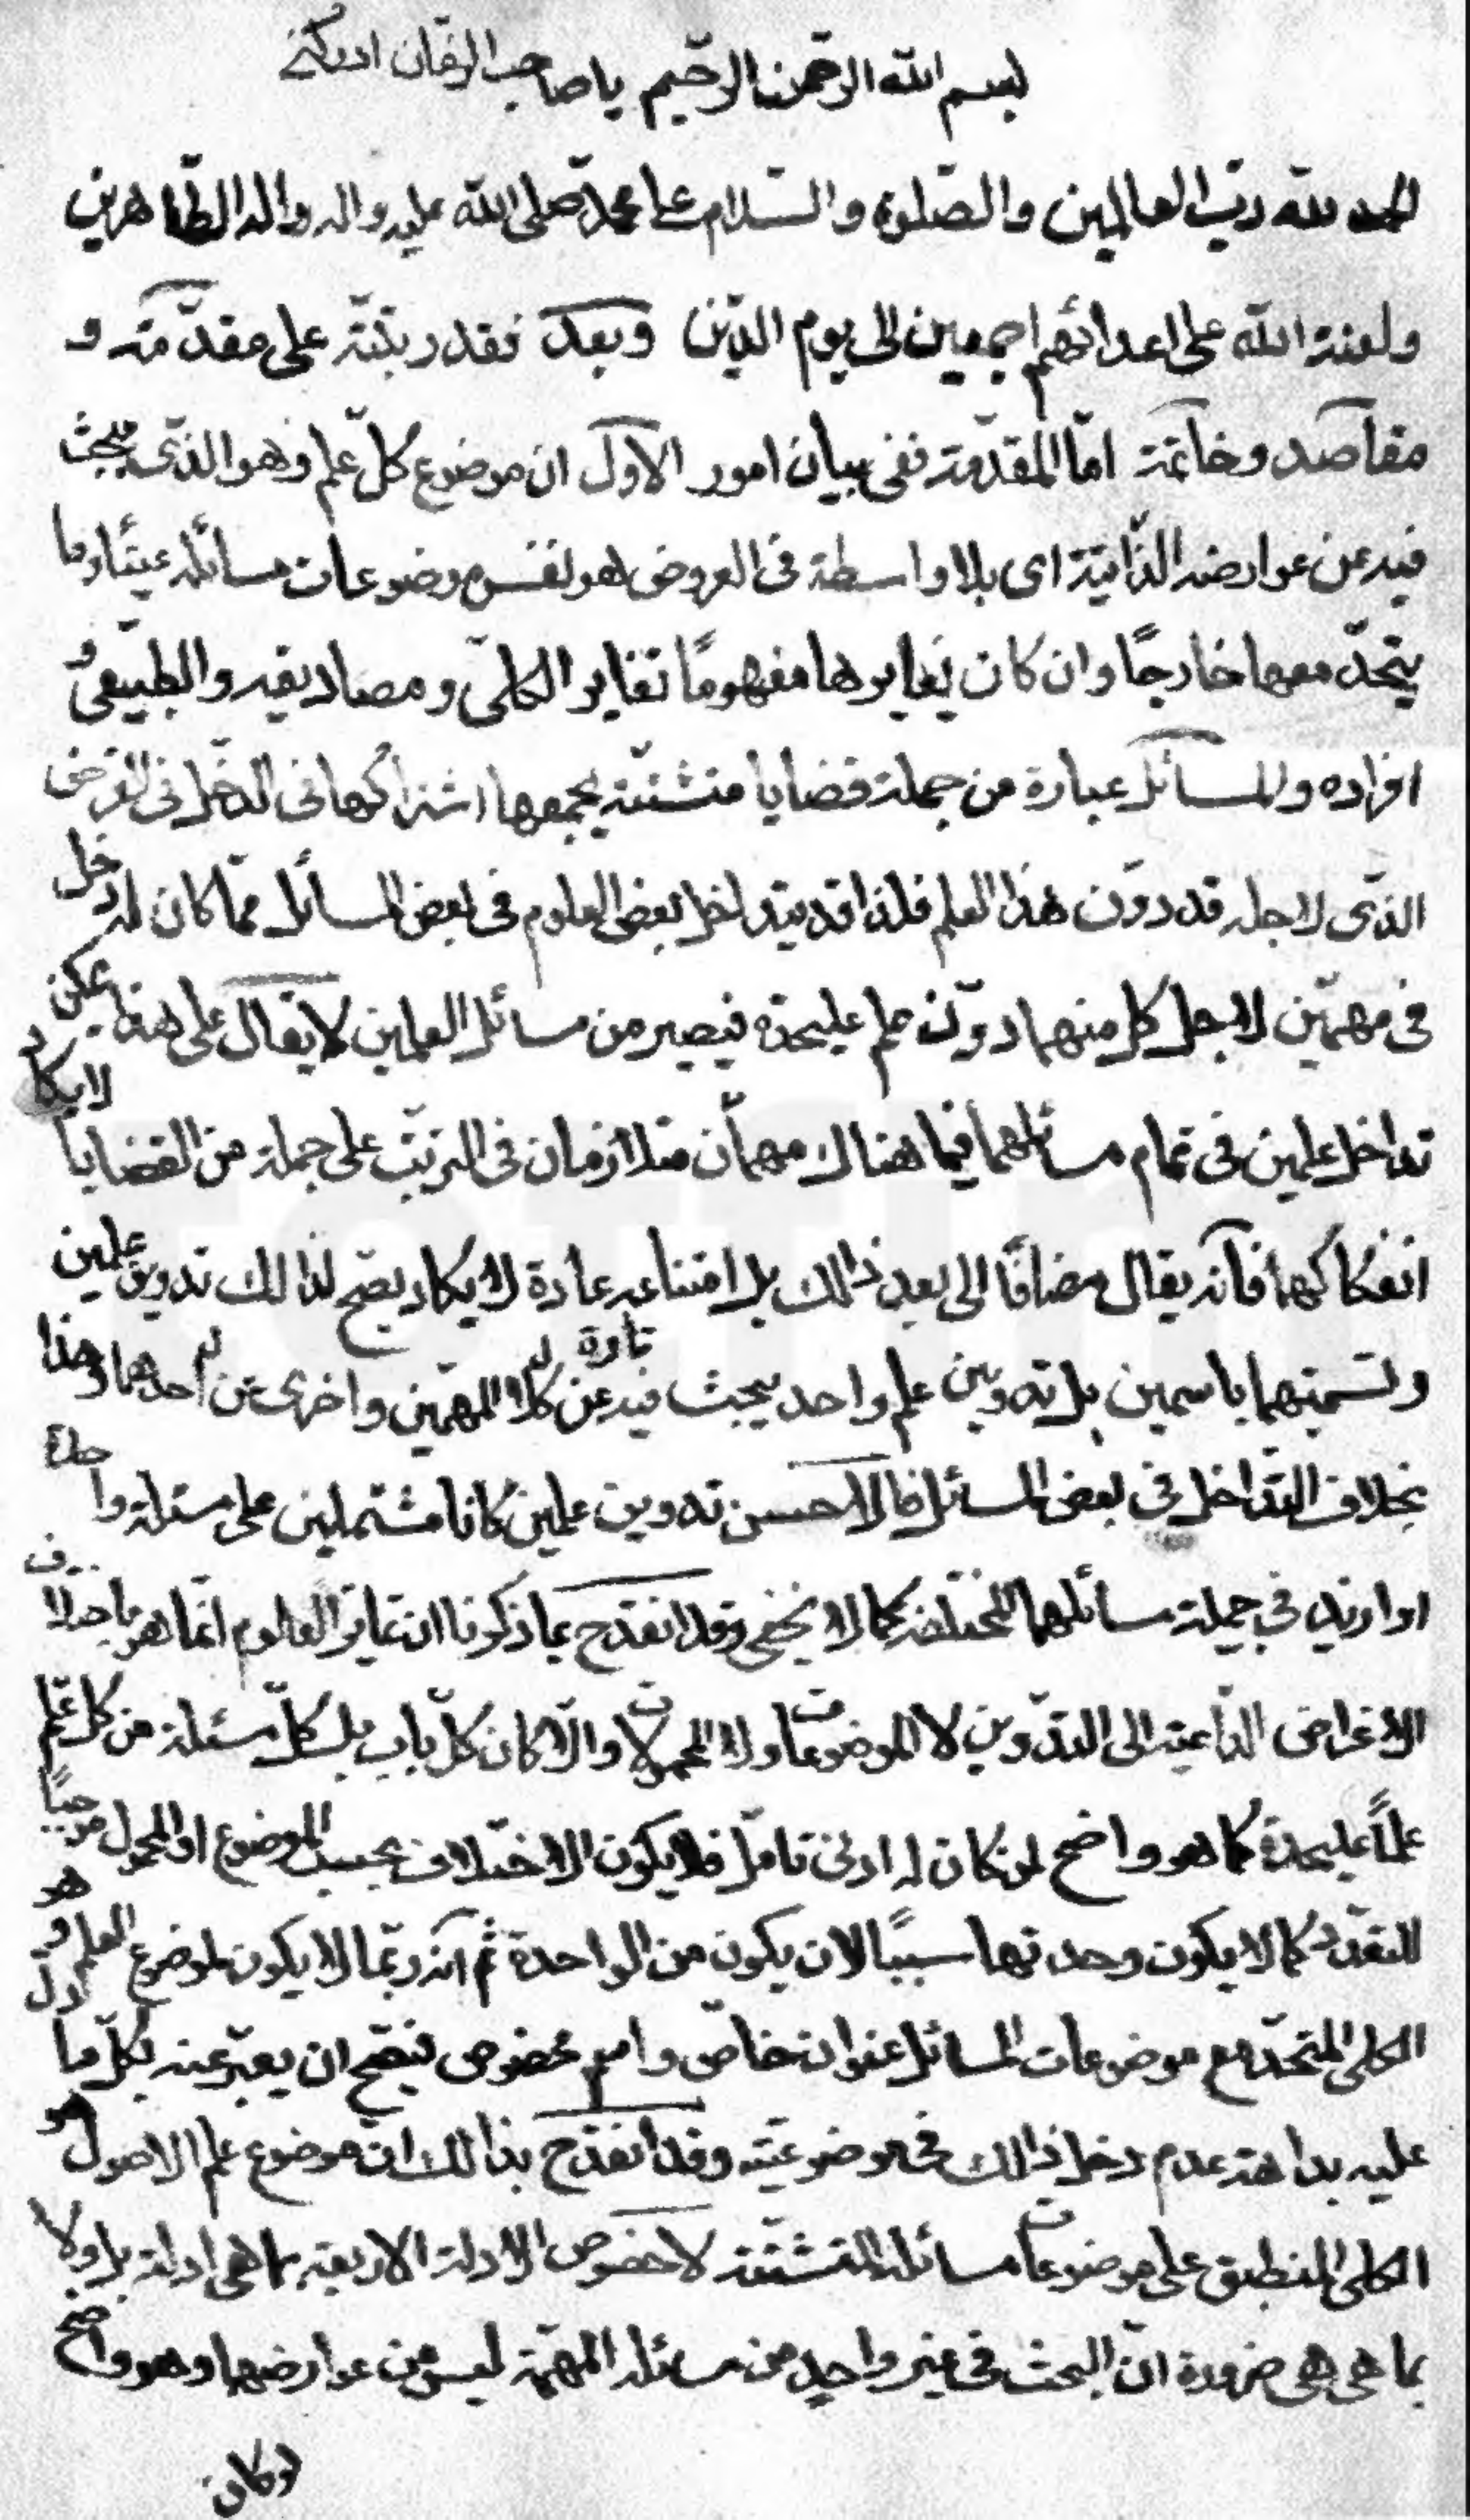 بسم الله الرحمن الرحيم يا صاحب الزمان ادركني
الحمد لله رب العالمين والصلوة والسلام على محمد صلى الله عليه واله واله الطاهرين
ولعنة الله على اعدائهم اجمعين الى يوم الدين وبعد فقد رتبته على مقدمة و
مقاصد وخاتمة اما المقدمة ففى بيان امور الاول ان موضوع كل علم وهو الذى يبحث
فيه عن عوارضه الذاتية اى بلا واسطة فى العروض هو نفس موضوعات مسائله عينًا وما
يتحد معها خارجًا وان كان يغايرها مفهومًا تغاير الكلى ومصاديقه والطبيعى و
افراده والمسائل عبارة من جملة قضايا متشتتة يجمعها اشتراكها فى الدخل فى الغرض
الذى لاجله قد دون هذا العلم فلذا قد يتداخل بعض العلوم فى بعض المسائل مما كان له دخل
فى مهمين لاجل كل منهما دون علم عليحدة فيصير من مسائل العلمين لا يقال على هذا يمكن
تداخل علمين فى تمام مسائلهما فيما هناك مهمان متلازمان فى الترتب على جملة من القضايا لا يكاد
انفكاكهما فانه يقال مضافًا الى بعد ذالك بل امتناعه عادة لا يكاد يصح لذالك تدوين علمين
وتسميتهما باسمين بل تدوين علم واحد يبحث فيه تارة لـ عن كلا المهمين واخرى عن لـ احدهما وهذا
بخلاف التداخل فى بعض المسائل فالاحسن تدوين علمين كانا مشتملين على مسئلة واحدة
او ازيد فى جملة مسائلهما المختلفة كما لا يخفى وقد انقدح بما ذكرنا ان تمايز العلوم انما هو باختلاف
الاغراض الداعية الى التدوين لا الموضوعات ولا المحمولات والا كان كل باب بل كل مسئلة من كل علم
علمًا عليحدة كما هو واضح لمن كان له ادنى تامل فلا يكون الاختلاف بحسب الموضوع او المحمول موجبًا
للتعدد كما لا يكون وحدتهما سببًا لان يكون من الواحدة ثم انه ربما لا يكون لموضوع العلم وهو
الكلى المتحد مع موضوعات المسائل عنوان خاص واسم مخصوص فيصح ان يعبر عنه بكل ما دل
عليه بداهة عدم دخل ذالك فى موضوعيته وقد انقدح بذالك ان موضوع علم الاصول هو
الكلى المنطبق على موضوعات مسائله المتشتتة لا خصوص الادلة الاربعة بما هى ادلة بل ولا
بما هى هى ضرورة ان البحث فى غير واحد من مسائله المهمة ليس من عوارضها وهو واضح
لو كان